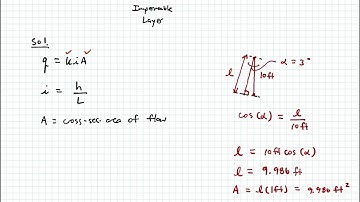 Impermeable
Layer
Sol.
q = kiA
i = h/L
A = cross-sec. area of flow
α = 3°
l
10ft
cos(α) = l/10ft
l = 10ft cos(α)
l = 9.986 ft
A = l(1ft) = 9.986 ft²